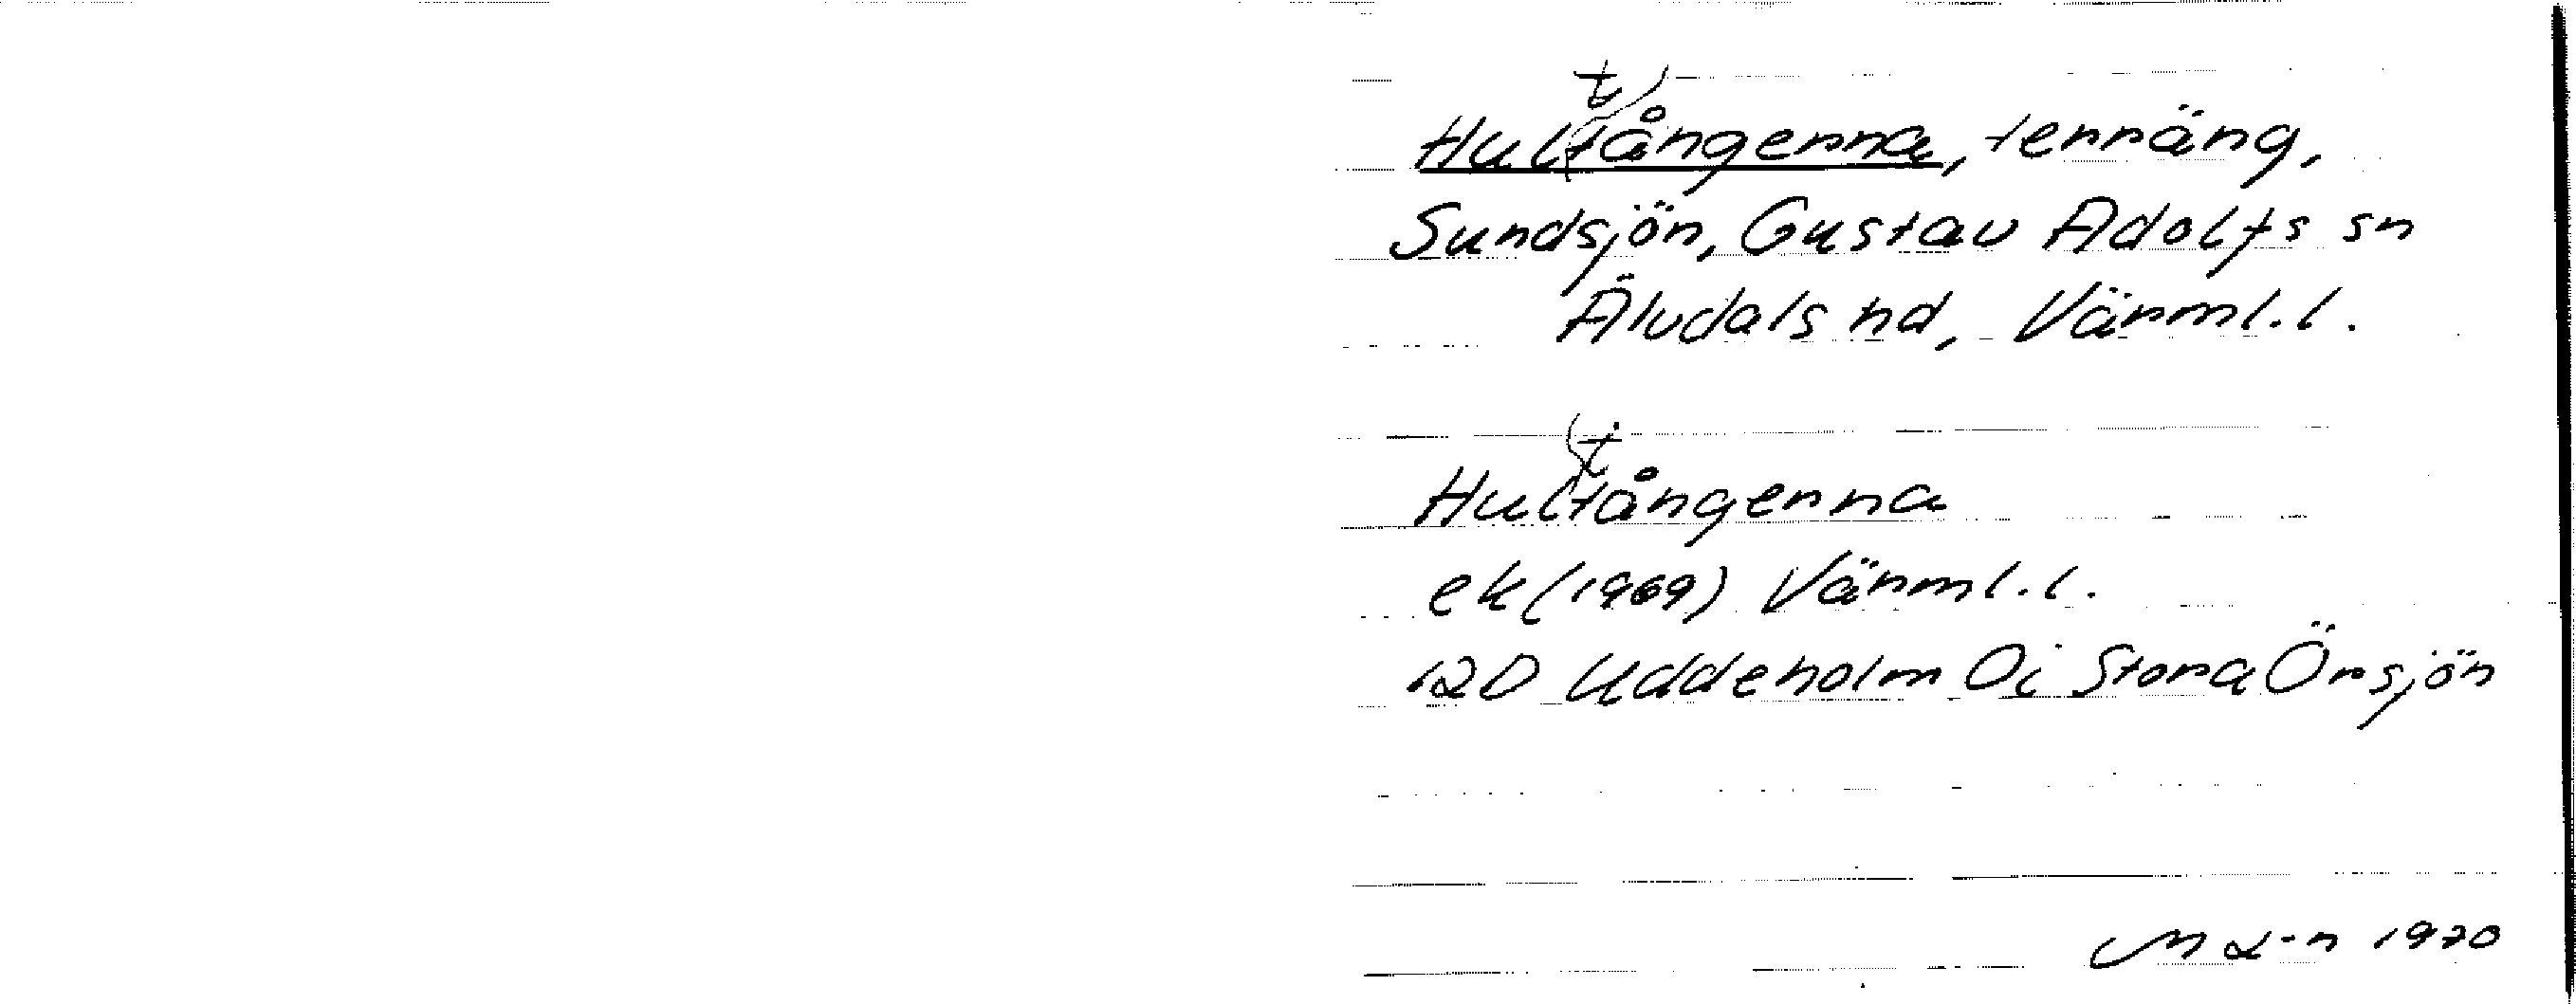 t
Hultångerna, terräng,
Sundsjön, Gustav Adolfs sn
Älvdals hd, Värml.l.
t
Hultångerna
ek (1969) Värml.l.
12D Uddeholm 0i Stora Örsjön
1970